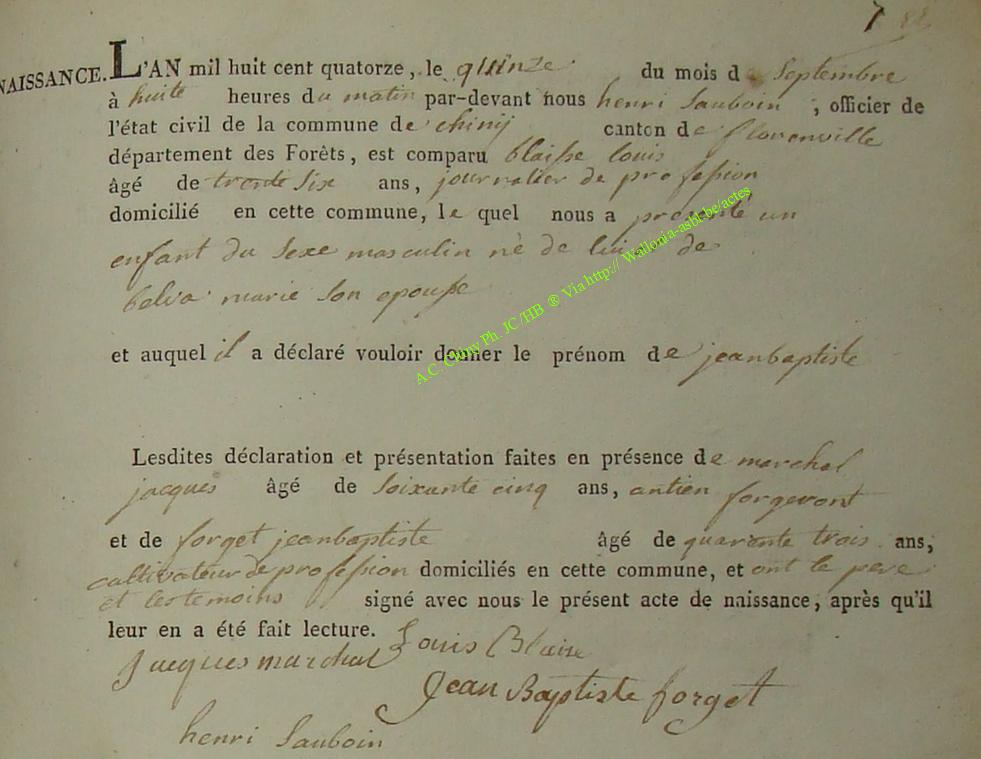 7
NAISSANCE. L'AN mil huit cent quatorze, le quinze du mois de Septembre
à huite heures du matin par-devant nous henri Sauboin, officier de
l'état civil de la commune de chinij canton de florenville
département des Forêts, est comparu blaisse louis
âgé de trente Six ans, journalier de profession
domicilié en cette commune, le quel nous a presenté un
enfant du Sexe masculin né de lui de
belva marie Son epousse
et auquel il a déclaré vouloir donner le prénom de jeanbaptiste
Lesdites déclaration et présentation faites en présence de marchal
jacques âgé de Soixante cinq ans, antien forgeront
et de forget jeanbaptiste âgé de quarante trois ans,
cultivateur de profession domiciliés en cette commune, et ont le pere
et les temoins signé avec nous le présent acte de naissance, après qu'il
leur en a été fait lecture.
Louis Blaise
Jacques marchal
Jean Baptiste forget
henri Sauboin
A.C. Chiny Ph. JC/HB ® Via http:// Wallonia-asbl.be/actes